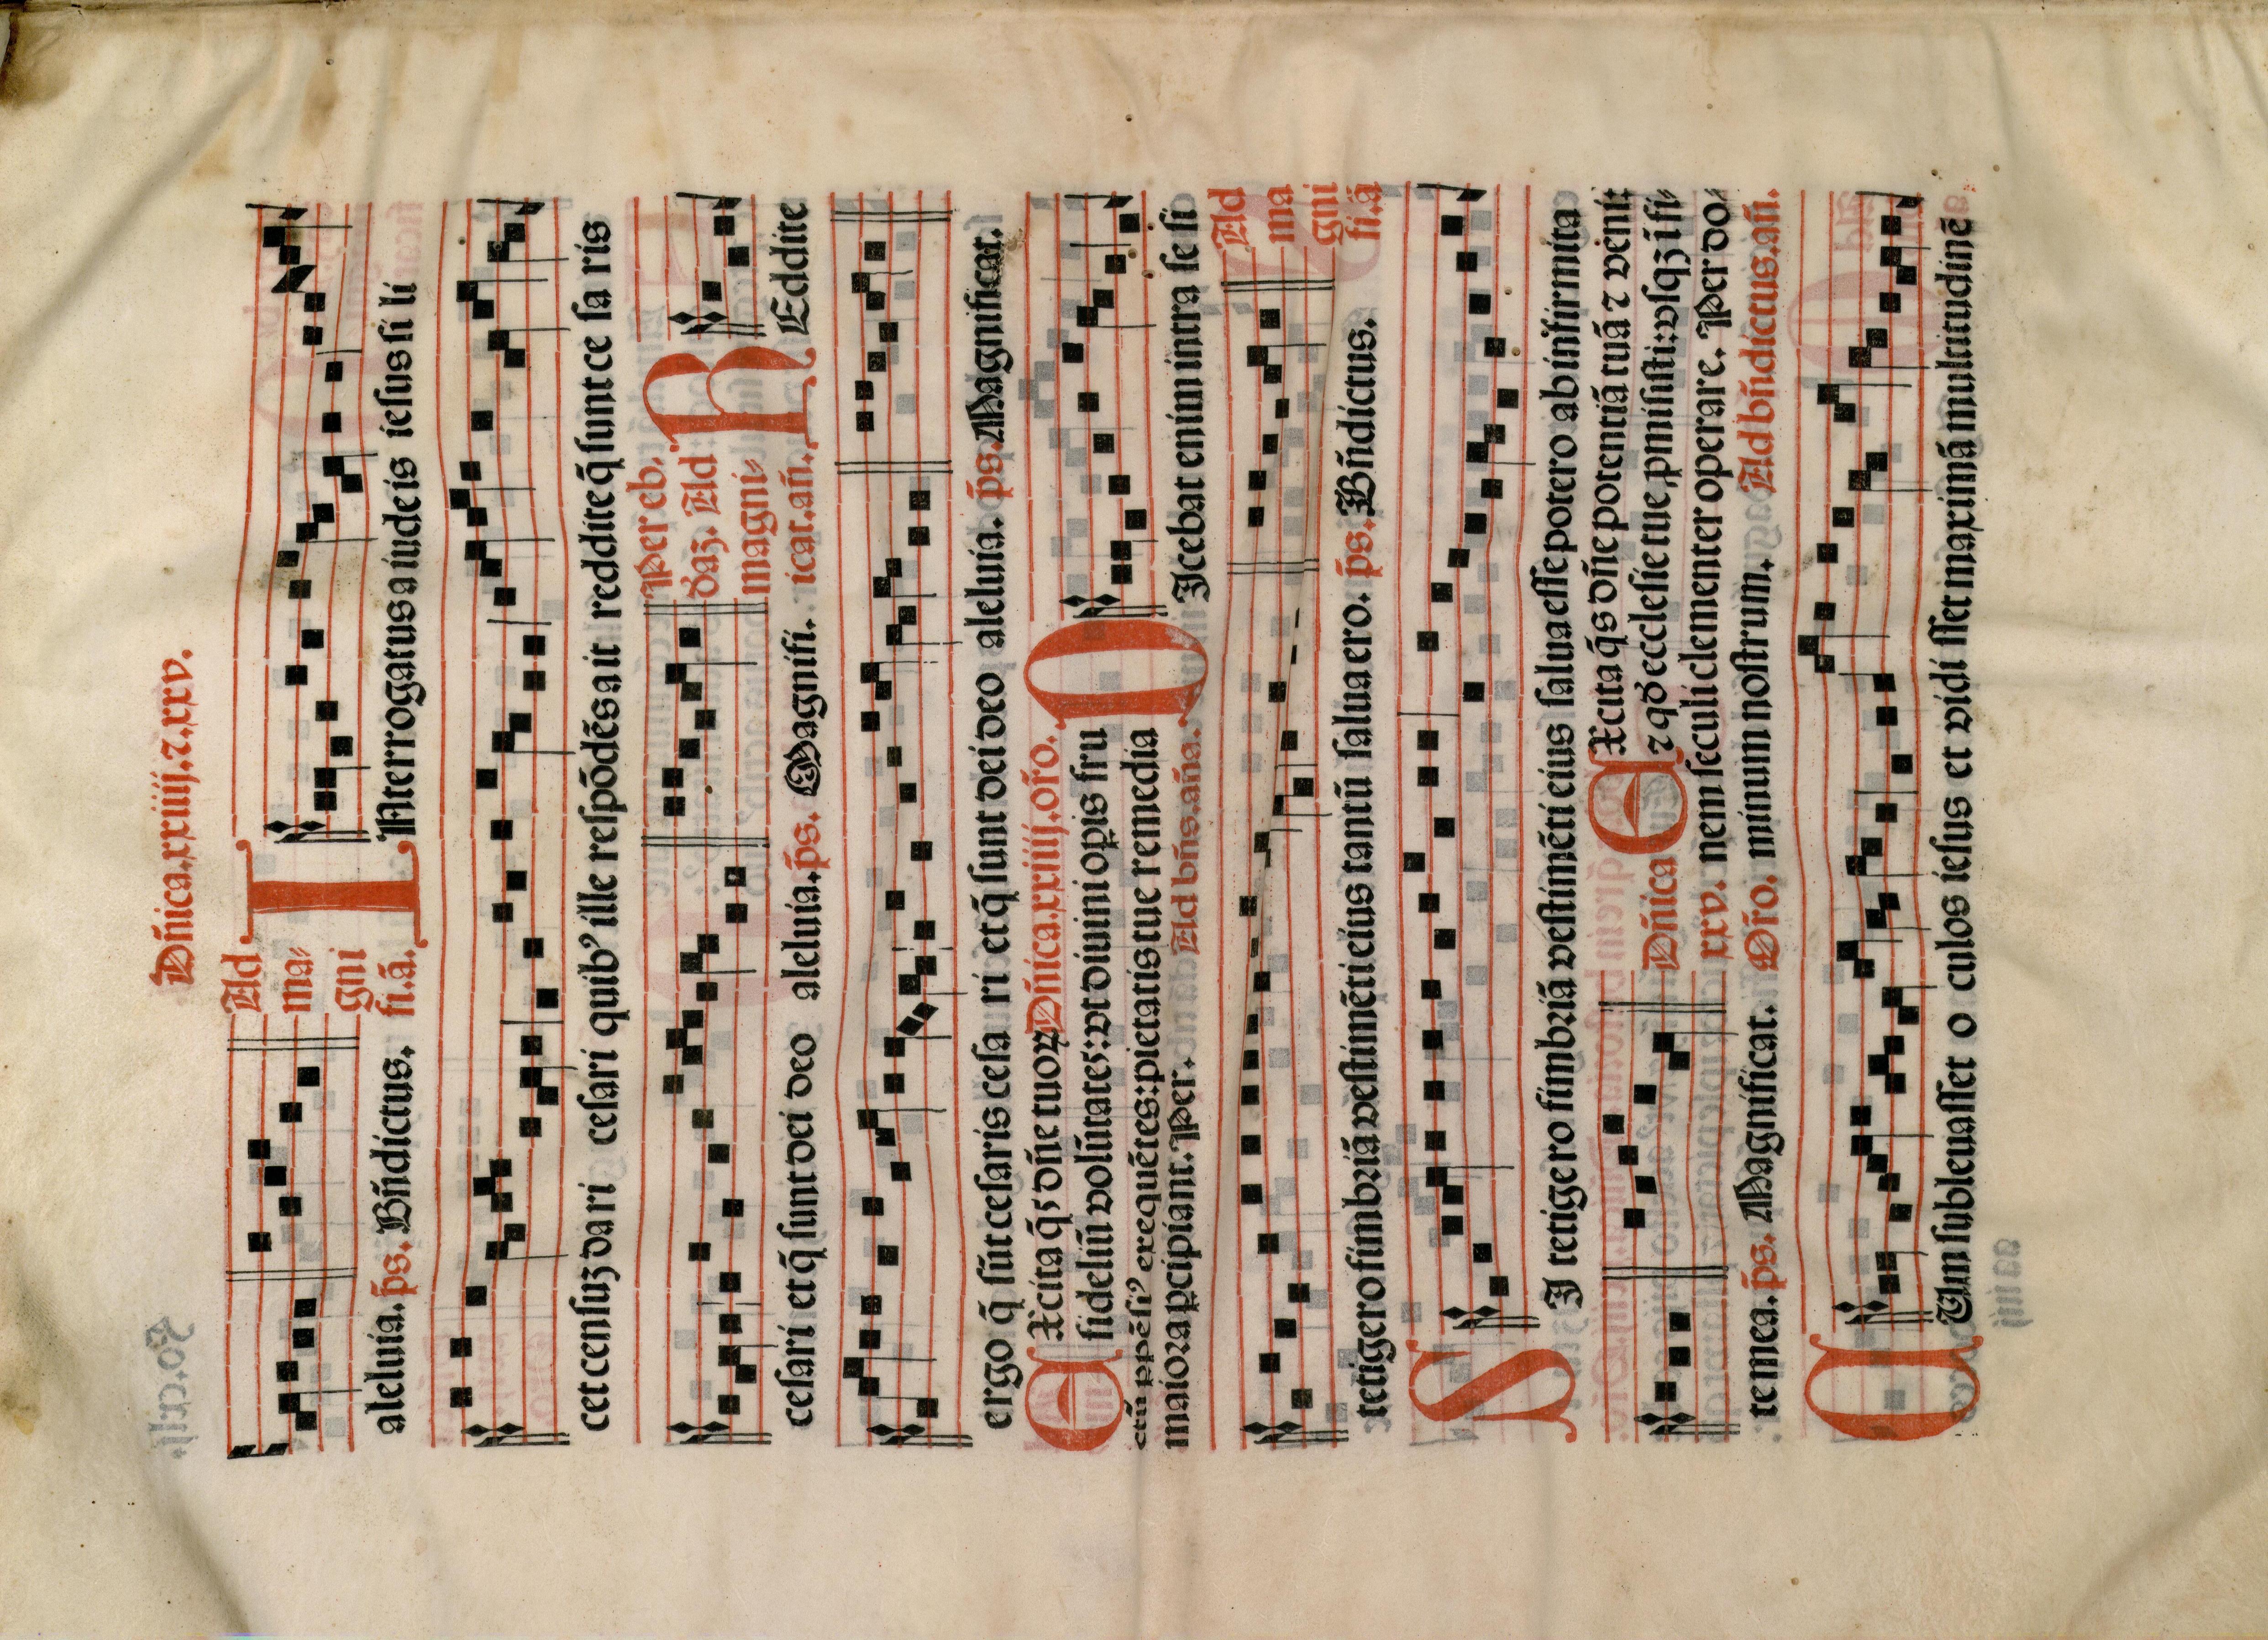 Dñica.xxiiij.⁊.xxv.
Ad
ma⸗
gni
aleluia. p̄s. Bñdictus. fi.ã. INterrogatus a iudeis iesus si li
cet censuʒ dari cesari quib⁹ ille respõdẽs ait reddite q̃ sunt ce sa ris
Per eb.
daʒ. Ad
magni⸗
cesari et q̃ sunt dei deo aleluia. p̄s. Magnifi. icat. añ. REddite
ergo q̃ sũt cesaris cesa ri et q̃ sunt dei deo aleluia. p̄s. Magnificat.
EXcita q̃s dñe tuoꝝ Dñica.xxiiij. oro.
fideliũ volũtates: vt diuini opis fru
ctũ ꝓpẽsi⁹ exequẽtes: pietatis tue remedia
maiora ꝑcipiant. Per. Ad bñs. aña. DIcebat enim intra se si
Ad
ma
gni
fi.ã
tetigero fimbriã vestimẽti eius tantũ salua ero. p̄s. Bñdictus.
SI tetigero fimbriã vestimẽti eius salua esse potero ab infirmita
Dñica EXcita q̃s dñe potentiã tuã ⁊ veni:
⁊ qď ecclesie tue ꝓmisisti: vsqʒ ĩ fi⸗
xxv. nem seculi clementer operare. Per do⸗
te mea. p̄s. Magnificat. Oro. minum nostrum. Ad bñdictus. añ.
CUm subleuasset o culos iesus et vidi sset maximã multitudinẽ